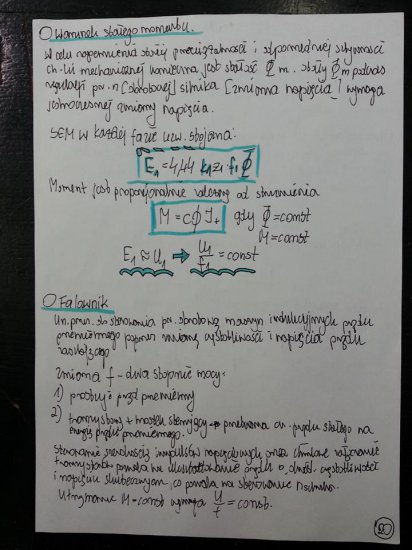 Warunek stałego momentu.
W celu zapewnienia stałej przeciążalności i odpowiedniej sztywności
ch-ki mechanicznej konieczna jest stałość Φm. Stały Φm podczas
regulacji pr. n [obrotowej] silnika [zmiana napięcia] wymaga
jednoczesnej zmiany napięcia.
SEM w każdej fazie uzw. stojana:
E₁ = 4,44 k₁z₁ f₁ Φ
Moment jest proporcjonalnie zależny od strumienia
M = cΦI₊ gdy Φ = const
M = const
E₁ ≈ U₁ ⇒ U₁/f₁ = const
Falownik
Urz. do sterowania pr. obrotową maszyn indukcyjnych prądu
przemiennego poprzez zmianę częstotliwości i napięcia prądu
zasilającego
zmiana f - dwa stopnie mocy:
1) prostuje prąd przemienny
2) tranzystory + mostek sterujący → przetwarza en. prądu stałego na
energię prądu przemiennego.
Sterowanie szerokością impulsów napięciowych oraz chwilowe włączanie
tranzystorów pozwala na kształtowanie prądu o częstotliwości
i napięciu skutecznym, co pozwala na sterowanie
Utrzymanie M = const wymaga U/f = const.